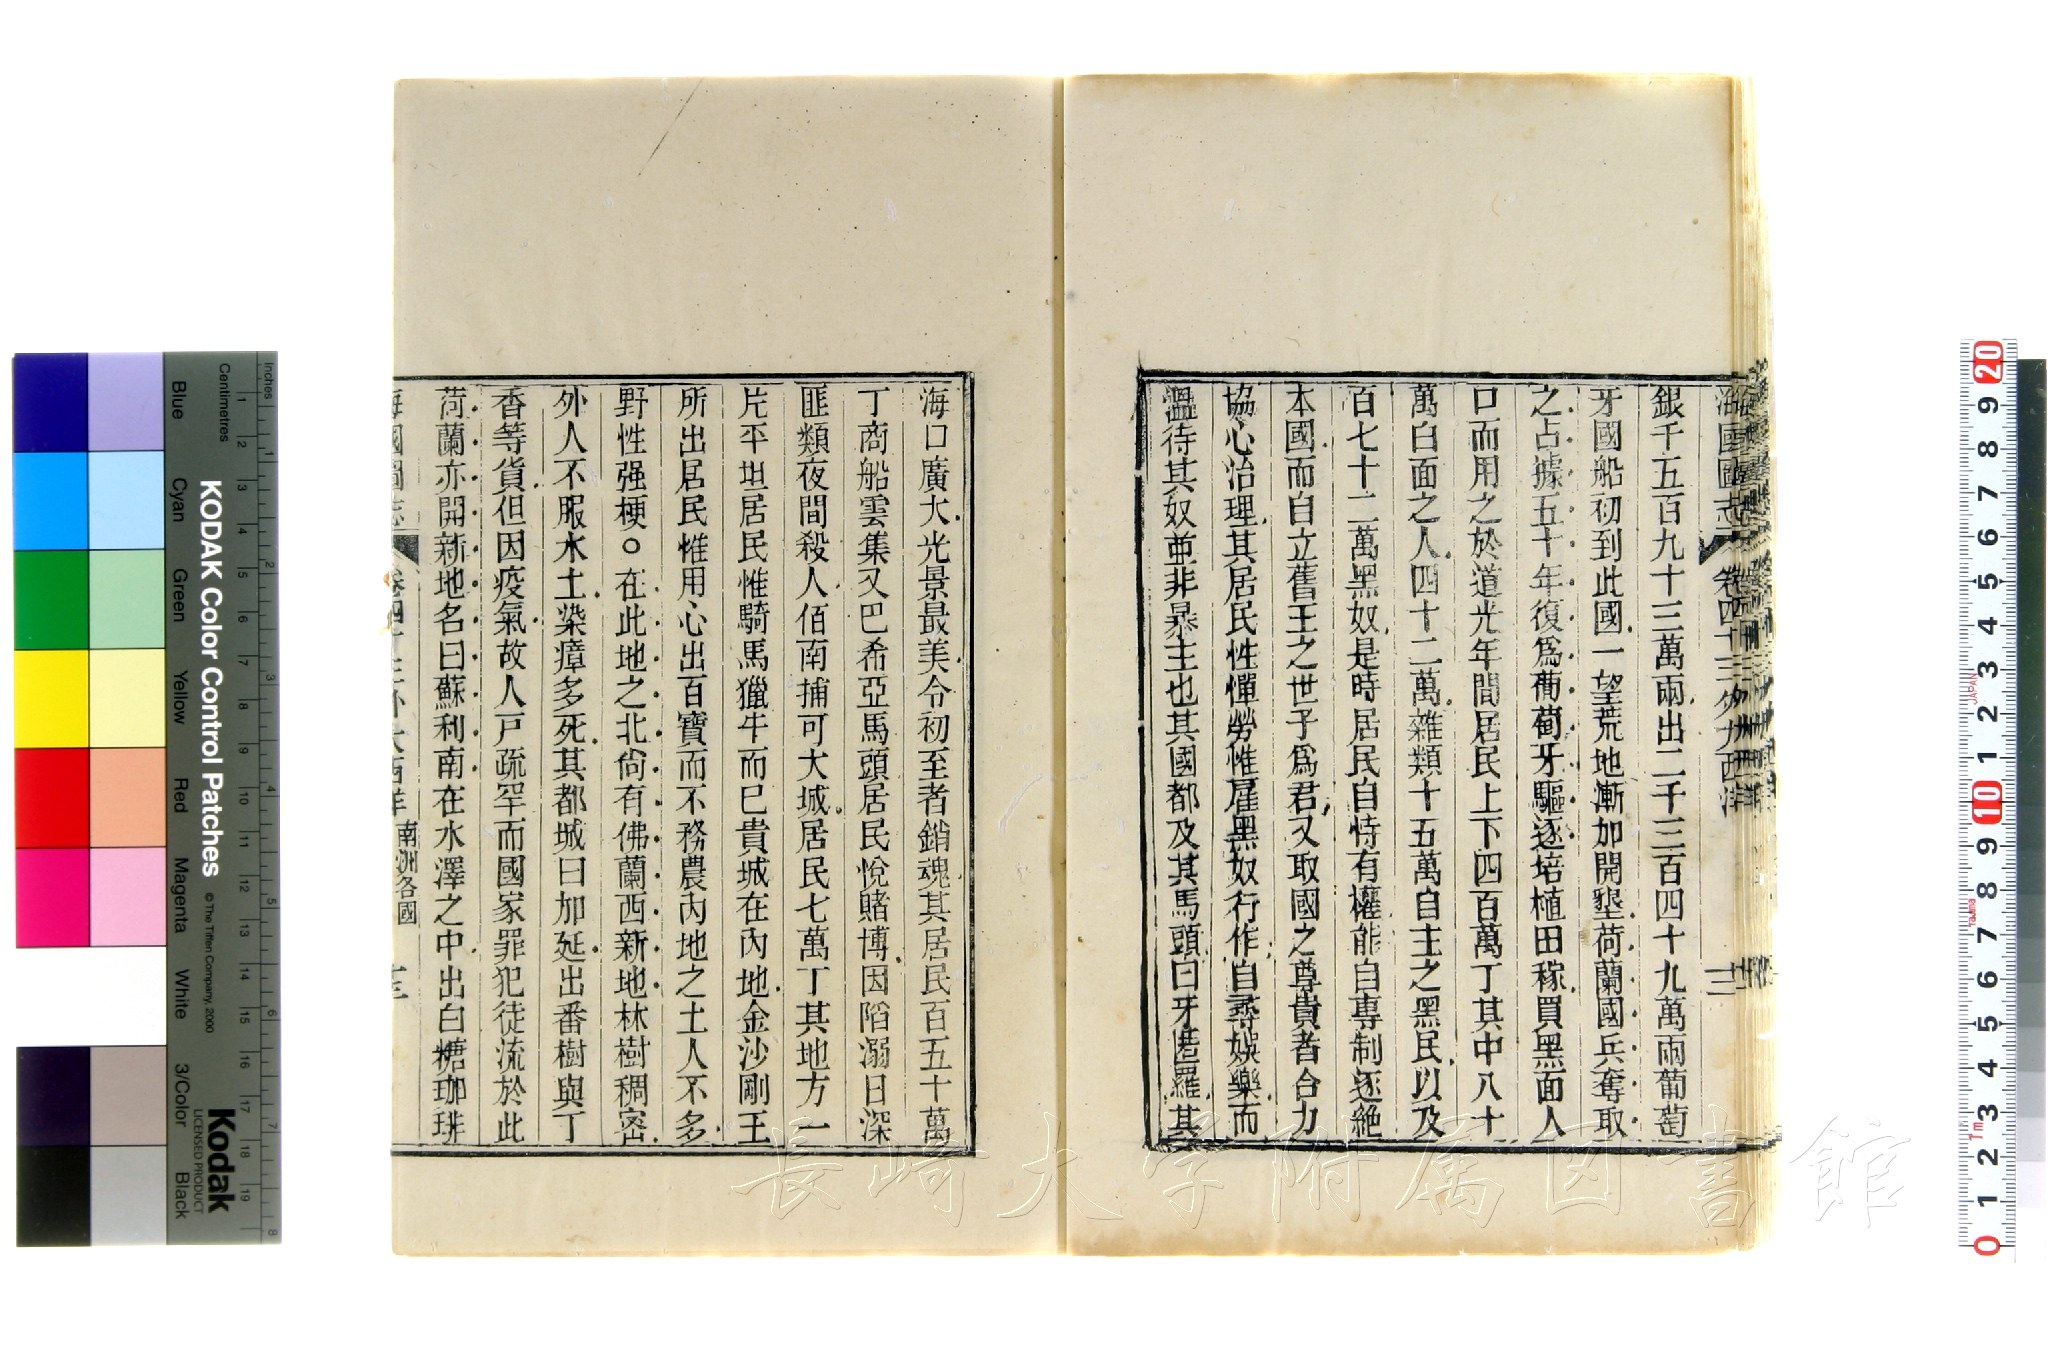 海國圖志 卷四十三 外大西洋
銀千五百九十三萬兩出二千三百四十九萬兩葡萄
牙國船初到此國一望荒地漸加開墾荷蘭國兵奪取
之占據五十年復爲葡萄牙驅逐培植田稼買黑面人
口而用之於道光年間居民上下四百萬丁其中八十
萬白面之人四十二萬雜類十五萬自主之黑民以及
百七十二萬黑奴是時居民自恃有權能自專制逐絶
本國而自立舊王之世子爲君又取國之尊貴者合力
協心治理其居民性憚勞惟雇黑奴行作自尋娛樂而
溫待其奴並非暴主也其國都及其馬頭曰牙匿羅其
海口廣大光景最美令初至者銷魂其居民百五十萬
丁商船雲集又巴希亞馬頭居民悅賭博因陷溺日深
匪類夜間殺人佰南捕可大城居民七萬丁其地方一
片平坦居民惟騎馬獵牛而已貴城在內地金沙剛王
所出居民惟用心出百寶而不務農內地之土人不多
野性强梗○在此地之北尙有佛蘭西新地林樹稠密
外人不服水土染瘴多死其都城曰加延出番樹與丁
香等貨但因疫氣故人戸疏罕而國家罪犯徒流於此
荷蘭亦開新地名曰蘇利南在水澤之中出白糖珈琲
海國圖志 卷四十三 外大西洋 南洲各國 十三
長崎大学附属図書館
KODAK Color Control Patches
© The Tiffen Company, 2000
Kodak
LICENSED PRODUCT
Inches
Centimetres
Blue Cyan Green Yellow Red Magenta White 3/Color Black
1 2 3 4 5 6 7 8 9 10 11 12 13 14 15 16 17 18 19
1 2 3 4 5 6 7 8
20 9 8 7 6 5 4 3 2 1 10 9 8 7 6 5 4 3 2 1 0
JAPAN